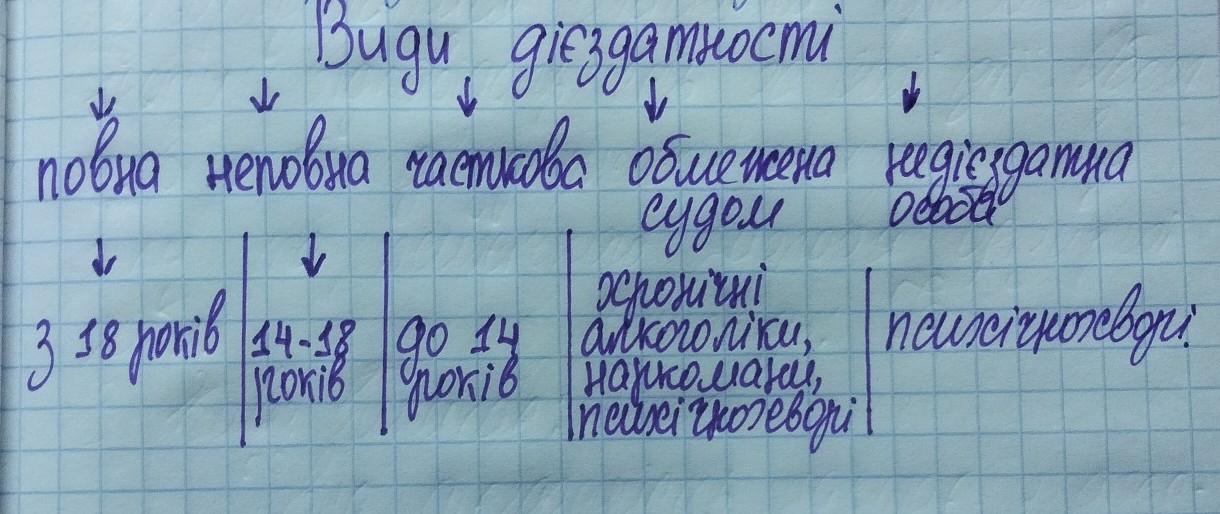 Види дієздатності
повна неповна часткова обмежена судом недієздатна особа
з 18 років
14-18 років
до 14 років
хронічні алкоголіки, наркомани, психічнохворі
психічнохворі.